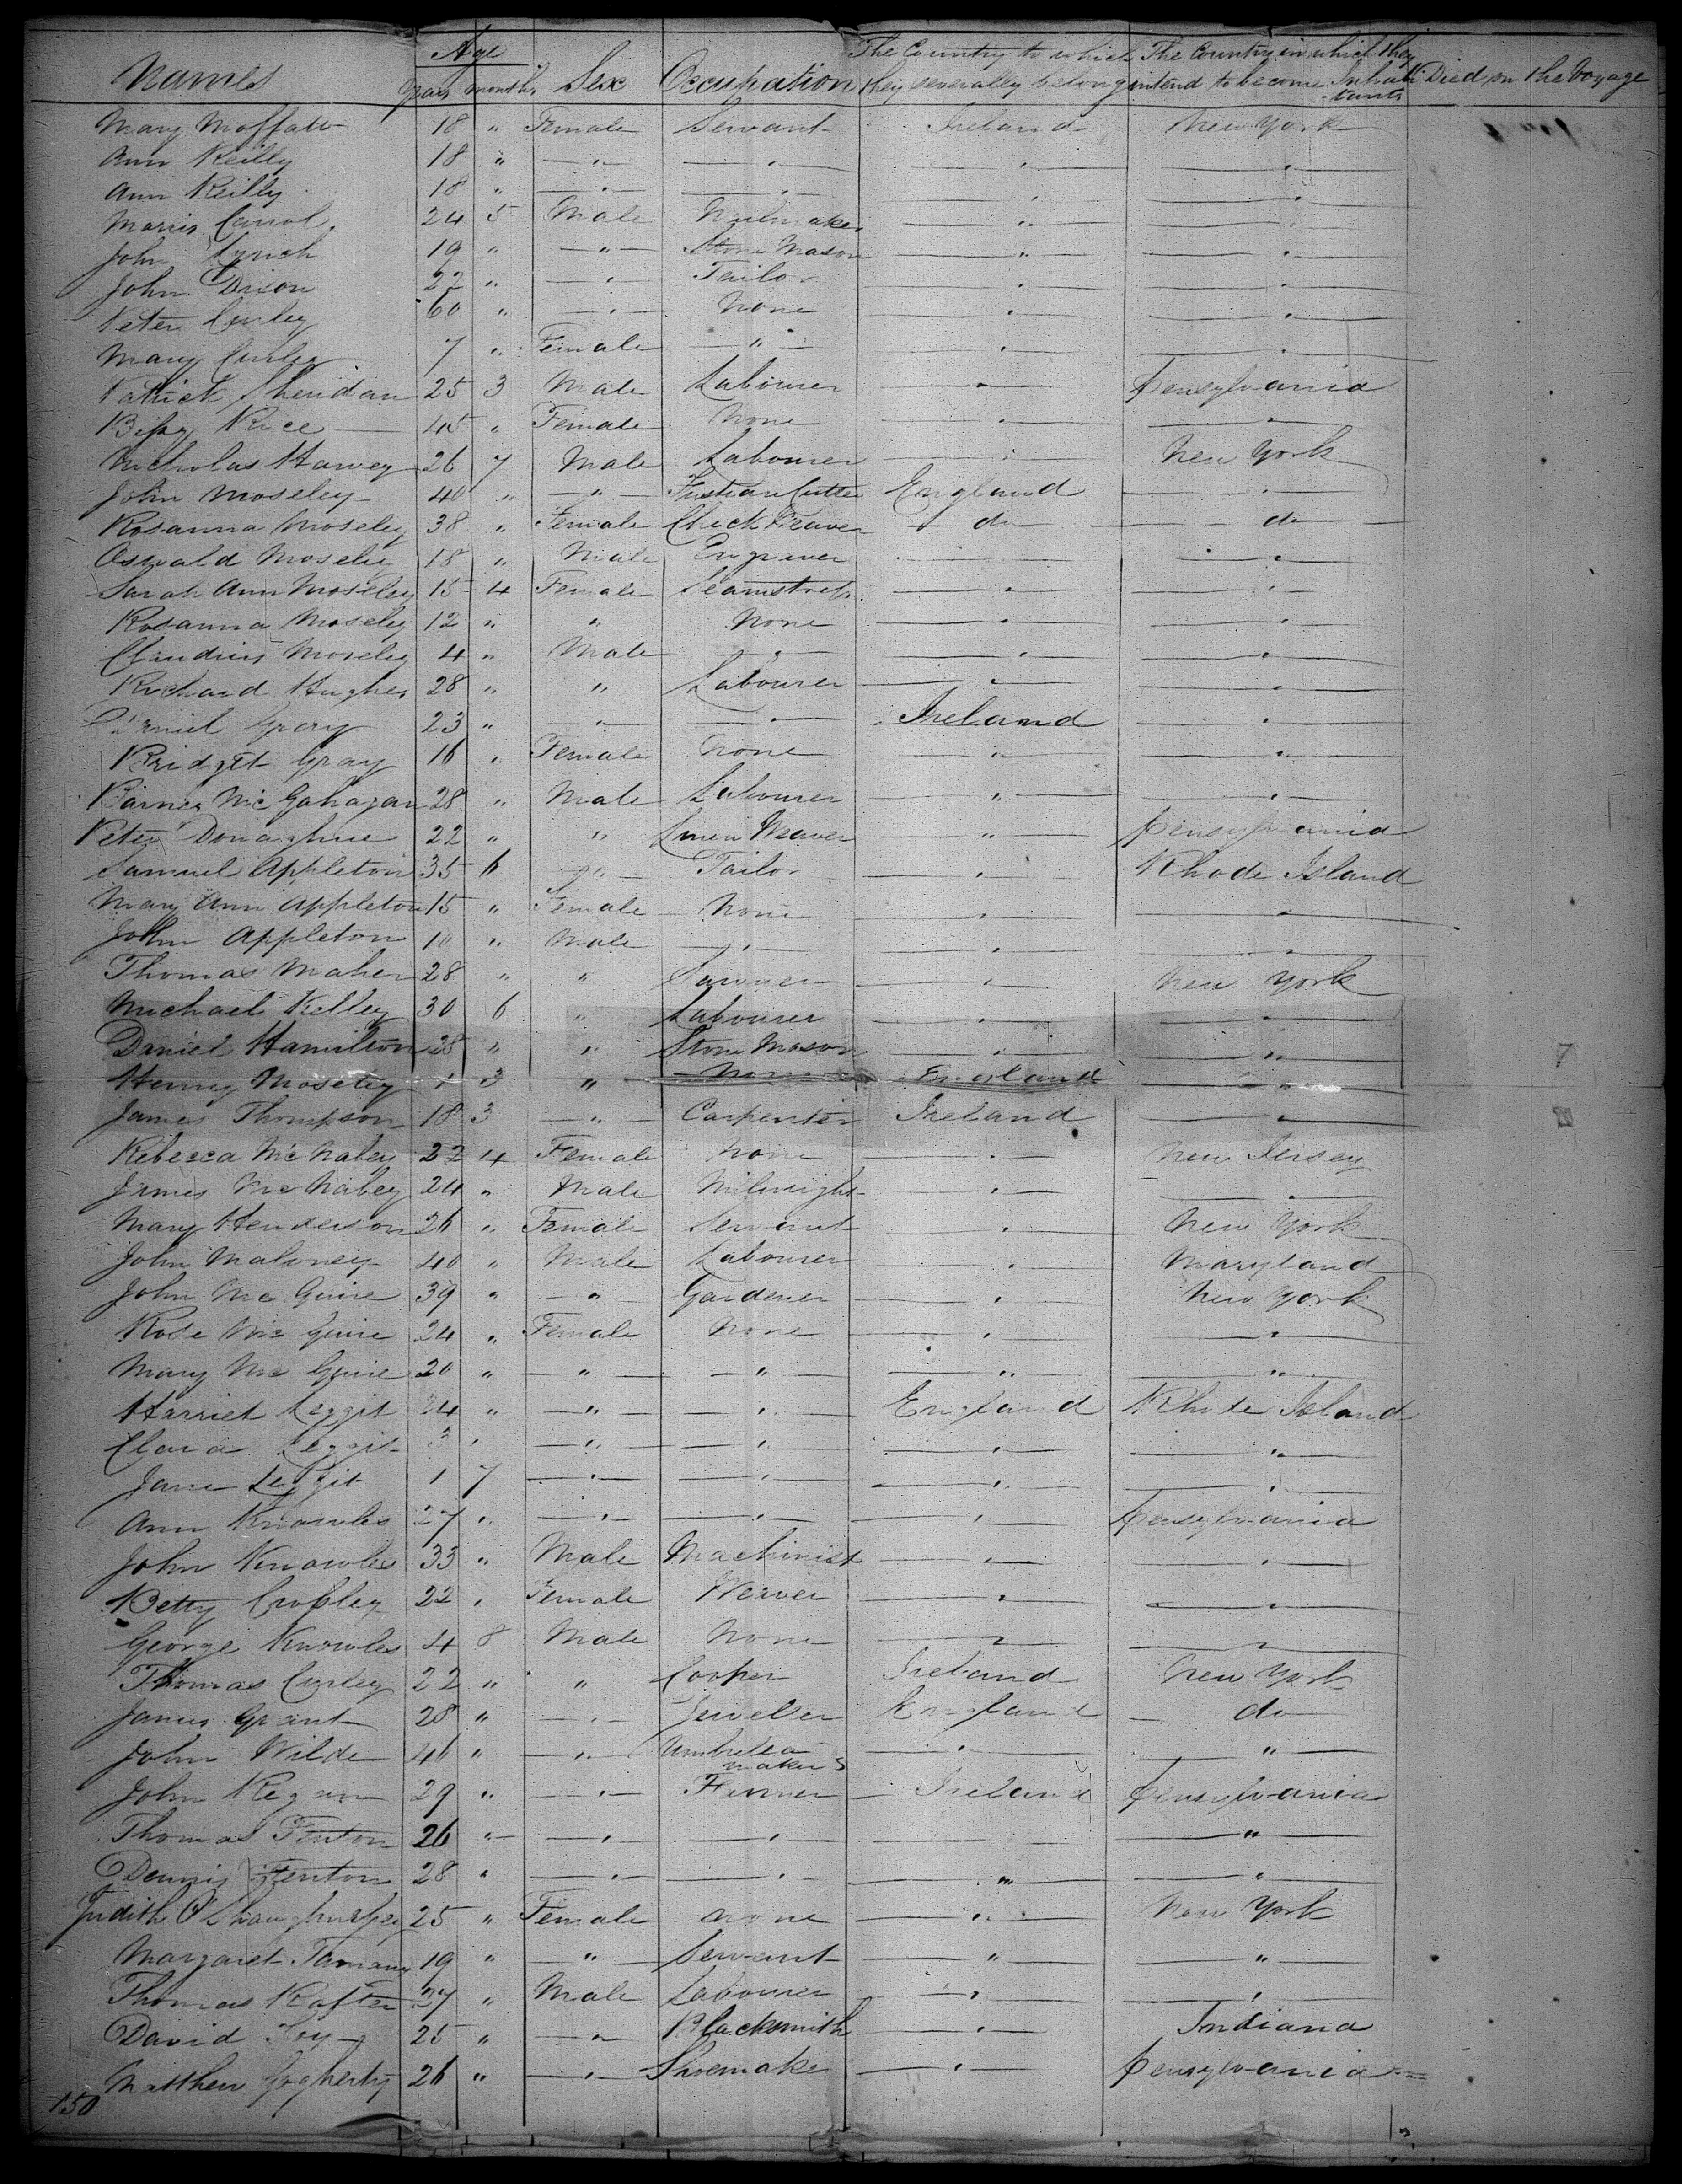 Names Age Sex Occupation The Country to which The Country in which they Died on the Voyage
years months they severally belong intend to become Inhabi-
tants
Mary Moffatt 18 " Female Servant Ireland New York
Ann Reilly 18 " " " " "
Ann Reilly 18 " " " " "
Morris Carrol 24 5 Male " "
John Lynch 19 " " Stone Mason " "
John Dixon 22 " " Tailor " "
Peter Curley 60 " " None " "
Mary Curley 7 " Female " " "
Patrick Sheridan 25 3 Male Labourer " Pensylvania
Bessy Rice 45 " Female None " "
Nicholas Harvey 26 7 Male Labourer " New York
John Moseley 40 " " Fustian Cutter England "
Rosanna Moseley 38 " Female Check Weaver do do
Oswald Moseley 18 " Male Engraver " "
Sarah Ann Moseley 15 4 Female Seamstress " "
Rosanna Moseley 12 " " None " "
Claudius Moseley 4 " Male " " "
Richard Hughes 28 " " Labourer " "
Daniel Gray 23 " " " Ireland "
Bridget Gray 16 " Female None " "
Barney McGahagan 28 " Male Labourer " "
Peter Donaghue 22 " " Linen Weaver " Pensylvania
Samuel Appleton 35 6 " Tailor " Rhode Island
Mary Ann Appleton 15 " Female None " "
John Appleton 10 " Male " " "
Thomas Maher 28 " " " New York
Michael Kelley 30 6 " Labourer " "
Daniel Hamilton 28 " " Stone Mason " "
Henry Moseley 1 3 " None England "
James Thompson 18 3 " Carpenter Ireland "
Rebecca McNabey 22 4 Female None " New Jersey
James McNabey 24 " Male Milwright " "
Mary Henderson 26 " Female Servant " New York
John Maloney 40 " Male Labourer " Maryland
John McGuire 39 " " Gardener " New York
Rose McGuire 24 " Female None " "
Mary McGuire 20 " " " " "
Harriet Leggit 24 " " " England Rhode Island
Clara Leggit 3 " " " " "
Jane Leggit 1 7 " " " "
Ann Knowles 27 " " " " Pensylvania
John Knowles 33 " Male Machinist " "
Betty Cropley 22 " Female Weaver " "
George Knowles 4 8 Male None " "
Thomas Curley 22 " " Cooper Ireland New York
James Grant 28 " " Jeweller England do
John Wilde 46 " " Umbrella " "
maker
John Regan 29 " " Farmer Ireland Pensylvania
Thomas Fenton 26 " " " "
Dennis Fenton 28 " " " " "
Judith O'Shaughnessey 25 " Female none " New York
Margaret 19 " " Servant " "
Thomas Rafter 27 " Male Labourer " "
David 25 " " Blacksmith " Indiana
Matthew Gogherty 26 " " Shoemaker " Pensylvania
150